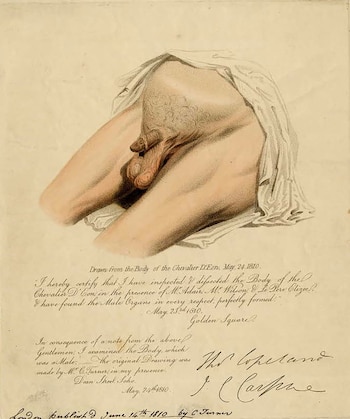 Drawn from the Body of the Chevalier D'Eon, May, 24. 1810.
I hereby certify that I have inspected & dissected the Body of the
Chevalier D'Eon, in the presence of Mr. Adair, Mr. Wilson, & Le Pere Elizee,
& have found the Male Organs in every respect, perfectly formed.
May, 23rd. 1810.
Golden Square.
In consequence of a note from the above
Gentlemen, I examined the Body, which
was a Male; the original Drawing was
made by Mr. C. Turner in my presence.
Dean Street Soho.
May, 24th. 1810.
Thos Copeland
J C Carpue
London Publish'd June 14th 1810 by C Turner